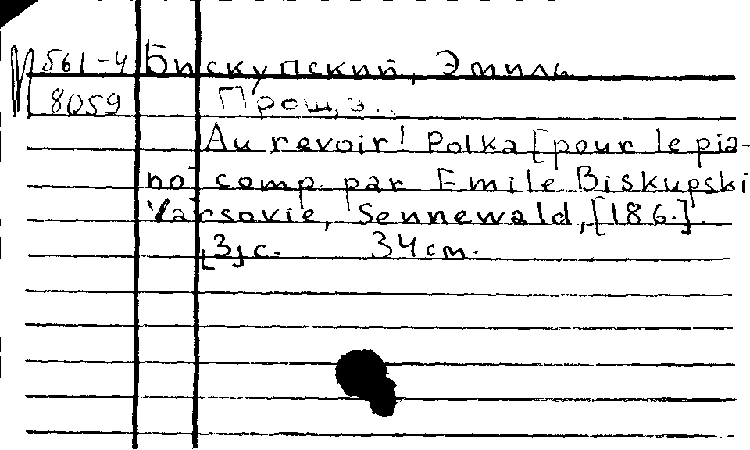 П561-4 Бискупский, Эмиль
8059 Прощ...
Au revoir! Polka [pour le pia-
no comp. par Emile Biskupski
Varsovie, Sennewald, [186.].
[3]с. 34 см.